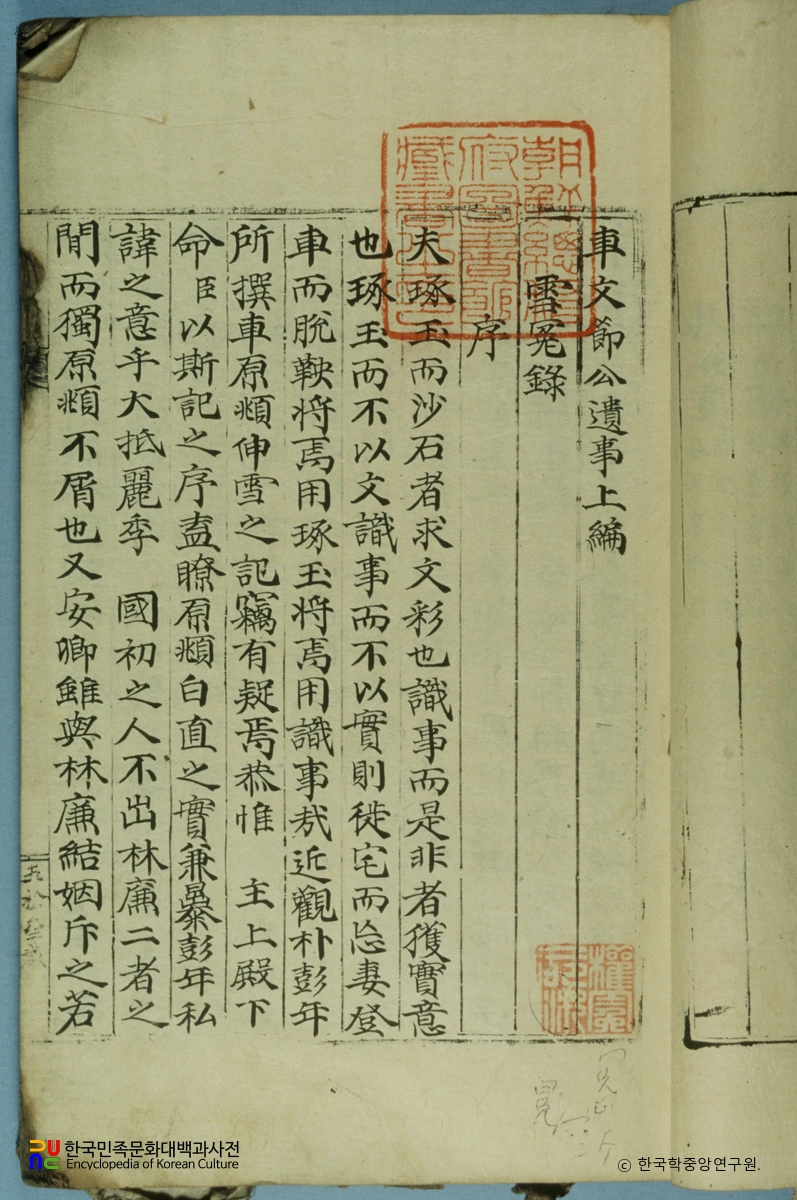 車文節公遺事上編
雪冤錄
序
夫琢玉而沙石者求文彩也識事而是非者獲實意
也琢玉而不以文識事而不以實則徙宅而忘妻登
車而脫鞅將焉用琢玉將焉用識事哉近觀朴彭年
所撰車原頫伸雪之記竊有疑焉恭惟 主上殿下
命臣以斯記之序盖瞭原頫白直之實兼暴彭年私
諱之意乎大抵麗季 國初之人不出林廉二者之
間而獨原頫不屑也又安卿雖與林廉結姻斥之若
朝鮮總督府圖書館藏書之印
한국민족문화대백과사전
Encyclopedia of Korean Culture
© 한국학중앙연구원.